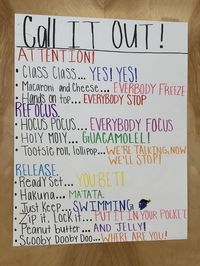 Call IT OUT!
ATTENTION!
• Class Class... YES! YES!
• Macaroni and Cheese... EVERYBODY FREEZE
• Hands on top... EVERYBODY STOP
REFOCUS.
• HOCUS POCUS... EVERYBODY FOCUS
• HOLY MOLY... GUACAMOLE!!
• Tootsie roll, lollipop... WE'RE TALKING, NOW
WE'LL STOP!
RELEASE.
• Ready Set... YOU BET!
• Hakuna... MATATA.
• Just Keep... SWIMMING
• Zip it. Lock it... PUT IT IN YOUR POCKET
• Peanut butter... AND JELLY!
• Scooby Dooby Doo... WHERE ARE YOU!